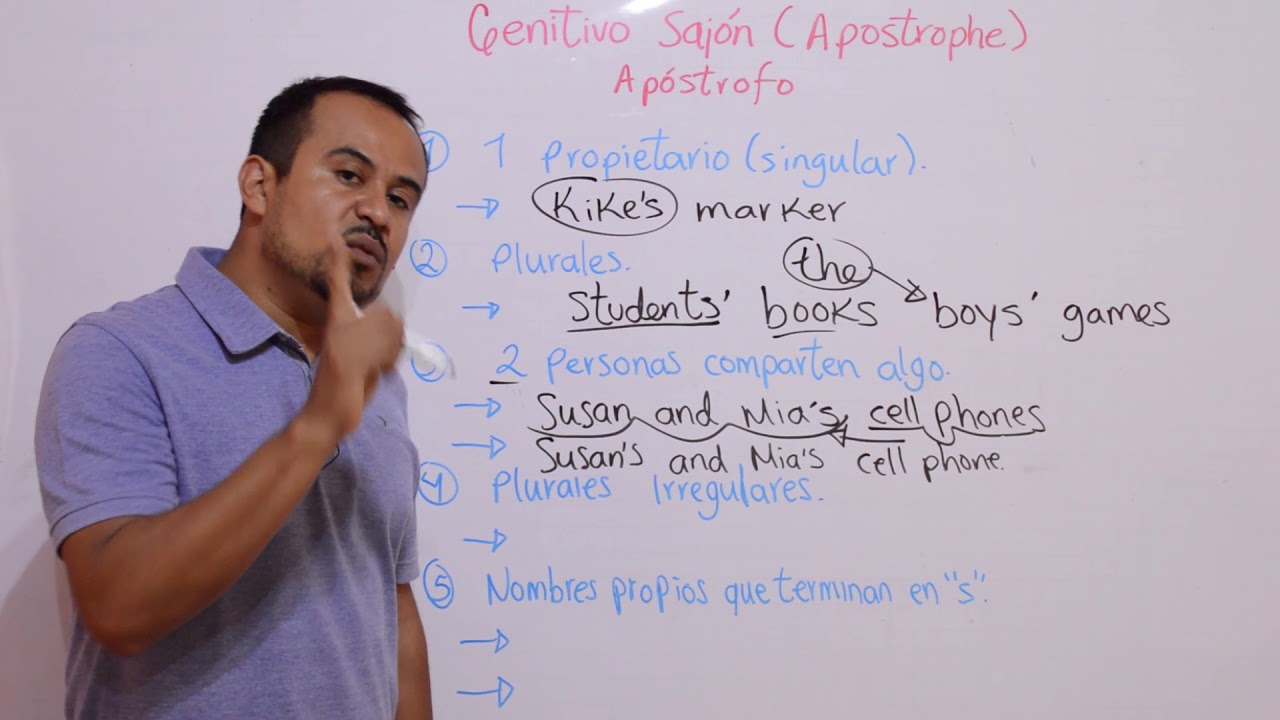 Genitivo Sajón (Apostrophe)
Apóstrofo
1 1 Propietario (singular).
→ Kike's marker
2 Plurales. the
→ Students' books boys' games
2 Personas comparten algo.
→ Susan and Mia's cell phones
→ Susan's and Mia's cell phone.
4 Plurales Irregulares.
→
5 Nombres propios que terminan en "s".
→
→